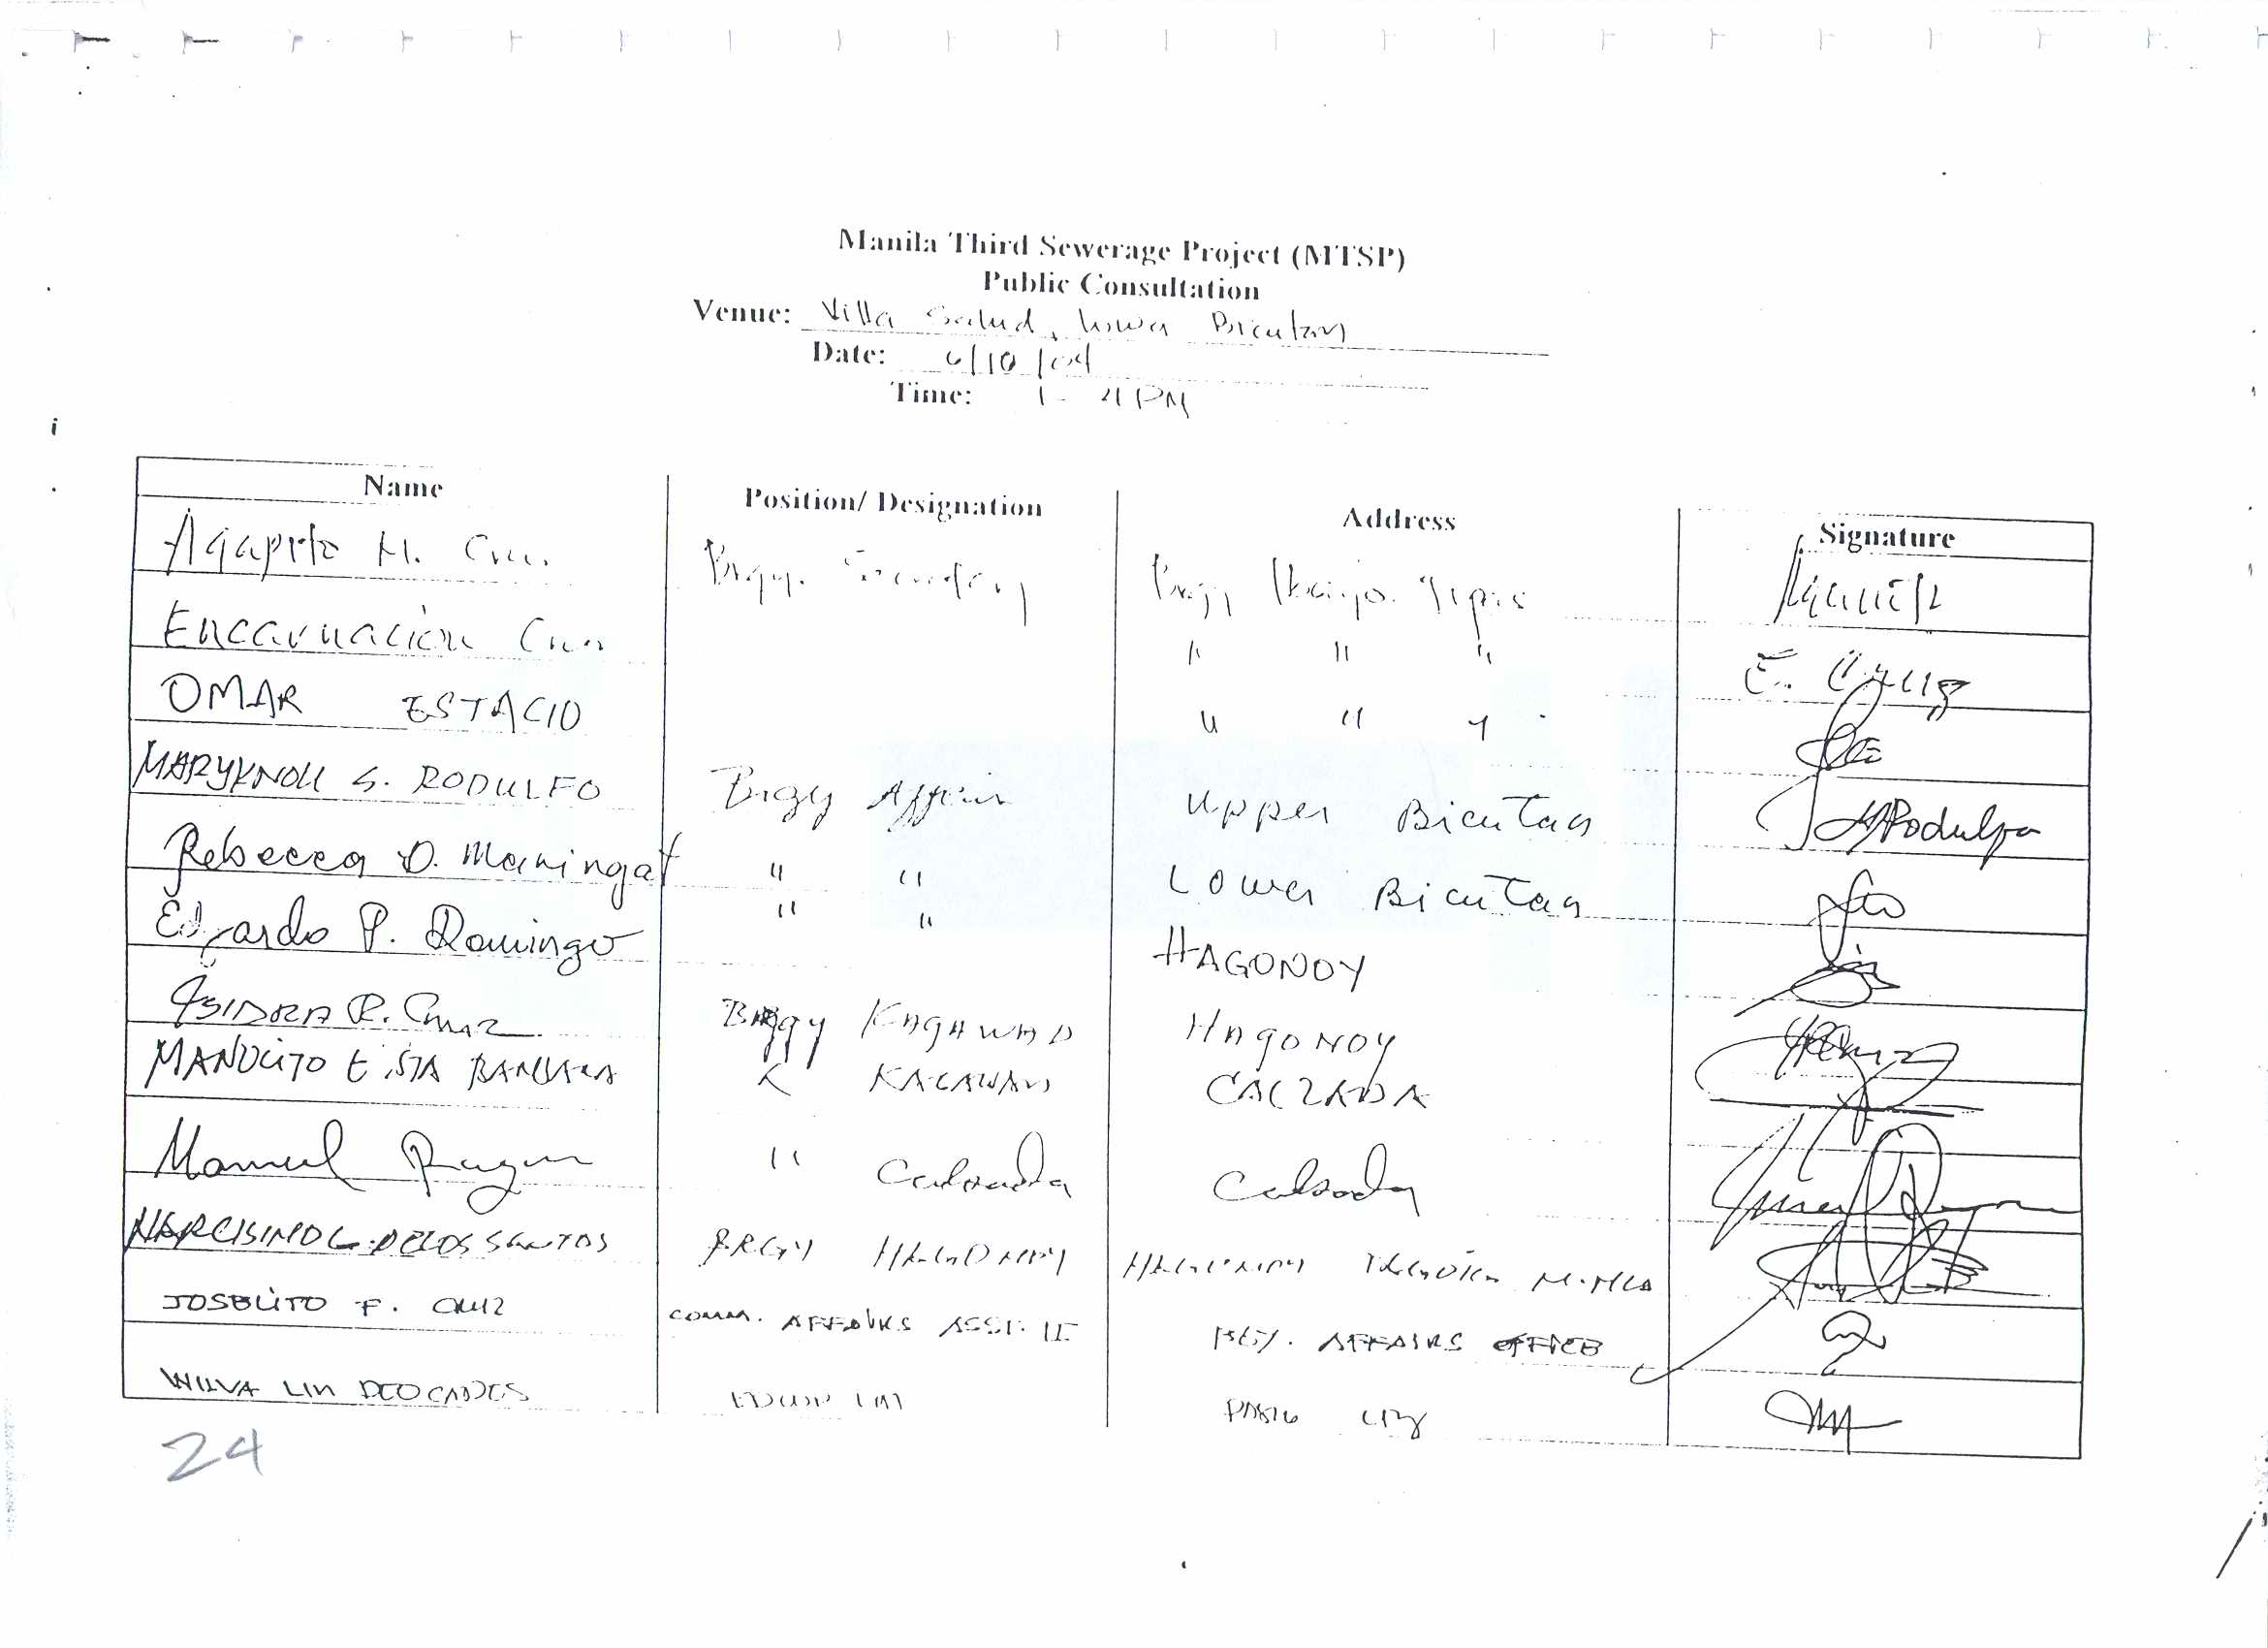 Manila Third Sewerage Project (MTSP)
Public Consultation
Venue: Villa Salud, Lower Bicutan
Date: 6/10/04
Time: 1 - 4 PM
Name Position/ Designation Address Signature
Agapito M. Cruz Brgy. Secretary Brgy Tipas
Encarnacion Cruz " " " E. Cruz
OMAR ESTACIO " " "
MARYKNOLL S. RODULFO Brgy Affair Upper Bicutan Rodulfo
Rebecca D. Maningat " " Lower Bicutan
Edgardo P. Domingo " " HAGONOY
ISIDRA R. Cruz Brgy KAGAWAD HAGONOY
MANOLITO E. STA BARBARA KAGAWAD CALZADA
Manuel " Calzada Calzada
NARCISIMO G. DELOS SANTOS BRGY HAGONOY HAGONOY M.MLA
JOSELITO F. CRUZ COMM. AFFAIRS ASST. II BGY. AFFAIRS OFFICE
WILVA LIN DEOCADES PASIG CITY
24